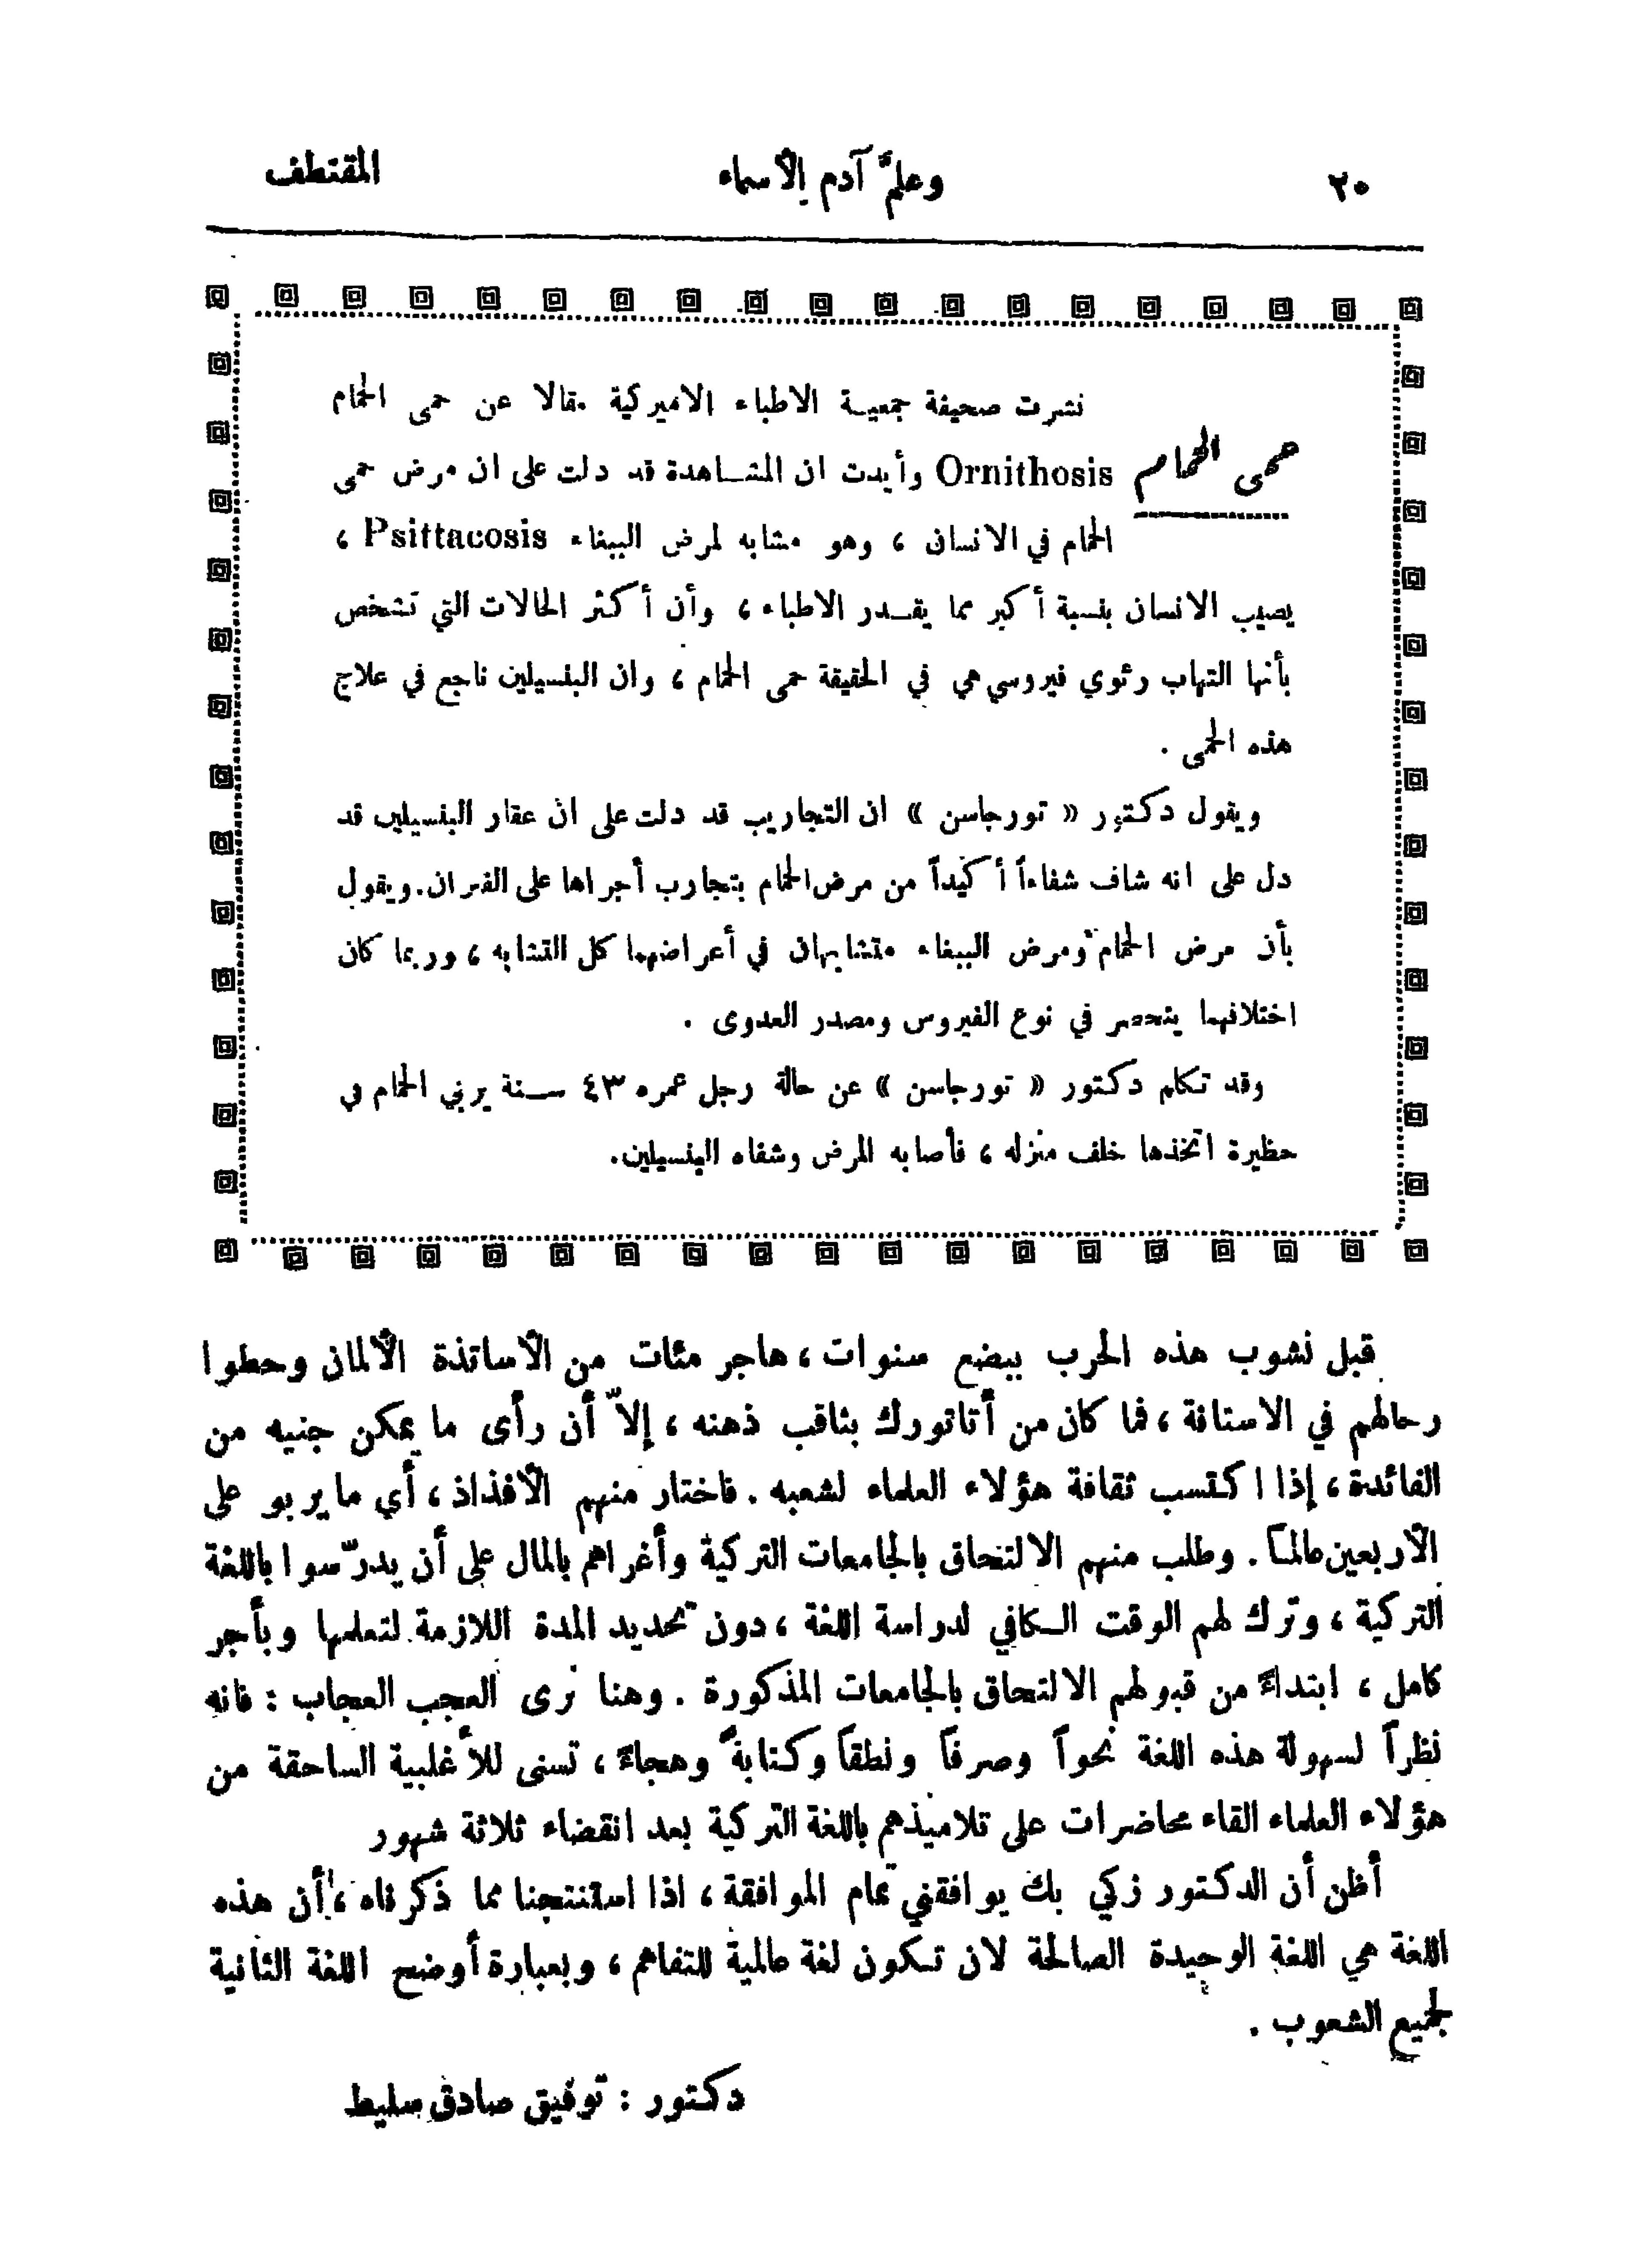 ٢٠
وعلَّم آدم الأسماء
المقتطف
حمى الحمام
نشرت صحيفة جمعية الاطباء الاميركية مقالا عن حمى الحمام
Ornithosis وأيدت ان المشاهدة قد دلت على ان مرض حمى
الحمام في الانسان ، وهو مشابه لمرض الببغاء Psittacosis ،
يصيب الانسان بنسبة أكبر مما يقدر الاطباء ، وأن أكثر الحالات التي تشخص
بأنها التهاب رئوي فيروسي هي في الحقيقة حمى الحمام ، وان البنسيلين ناجع في علاج
هذه الحمى .
ويقول دكتور « تورجاسن » ان التجاريب قد دلت على ان عقار البنسيلين قد
دل على انه شاف شفاءاً أكيداً من مرض الحمام بتجارب أجراها على الفئران . ويقول
بأن مرض الحمام ومرض الببغاء متشابهان في أعراضهما كل التشابه ، وربما كان
اختلافهما ينحصر في نوع الفيروس ومصدر العدوى .
وقد تكلم دكتور « تورجاسن » عن حالة رجل عمره ٤٣ سنة يربي الحمام في
حظيرة اتخذها خلف منزله ، فأصابه المرض وشفاه البنسيلين .
قبل نشوب هذه الحرب ببضع سنوات ، هاجر مئات من الأساتذة الألمان وحطوا
رحالهم في الاستانة ، فما كان من أتاتورك بثاقب ذهنه ، إلاّ أن رأى ما يمكن جنيه من
الفائدة ، إذا اكتسب ثقافة هؤلاء العلماء لشعبه . فاختار منهم الأفذاذ ، أي ما يربو على
الأربعين عالماً . وطلب منهم الالتحاق بالجامعات التركية وأغراهم بالمال على أن يدرّسوا باللغة
التركية ، وترك لهم الوقت الكافي لدراسة اللغة ، دون تحديد المدة اللازمة لتعلمها وبأجر
كامل ، ابتداءً من قبولهم الالتحاق بالجامعات المذكورة . وهنا نرى العجب العجاب : فانه
نظراً لسهولة هذه اللغة نحواً وصرفاً ونطقاً وكتابةً وهجاءً ، تسنى للأغلبية الساحقة من
هؤلاء العلماء القاء محاضرات على تلاميذهم باللغة التركية بعد انقضاء ثلاثة شهور
أظن أن الدكتور زكي بك يوافقني تمام الموافقة ، اذا استنتجنا مما ذكرناه ، أن هذه
اللغة هي اللغة الوحيدة الصالحة لان تكون لغة عالمية للتفاهم ، وبعبارة أوضح اللغة الثانية
لجميع الشعوب .
دكتور : توفيق صادق سليط